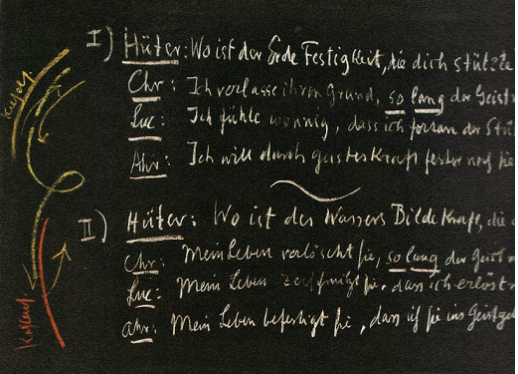 I) Hüter: Wo ist der Erde Festigkeit, die dich stützte
Chr: Ich verlasse ihren Grund, so lang der Geist
Luc: Ich fühle wonnig, dass ich fortan der Stü
Ahr: Ich will durch Geisteskraft fester noch sie
II) Hüter: Wo ist des Wassers Bildekraft, die d
Chr: Mein Leben verlöscht sie, so lang der Geist m
Luc: Mein Leben sie, dass ich erlöst
Ahr: Mein Leben befestigt sie, dass ich sie ins Geistgeb